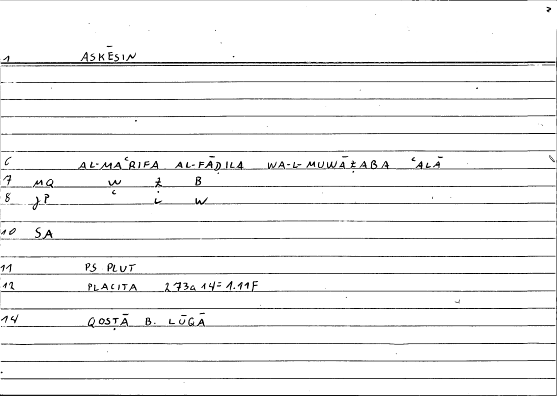 1 ASKĒSIN
6 AL-MAʿRIFA AL-FĀḌILA WA-L-MUWĀẒABA ʿALĀ
7 MQ W Ẓ B
8 JP ʿ L W
10 SA
11 PS PLUT
12 PLACITA 273a 14 = 1.11F
14 QOSṬĀ B. LŪQĀ